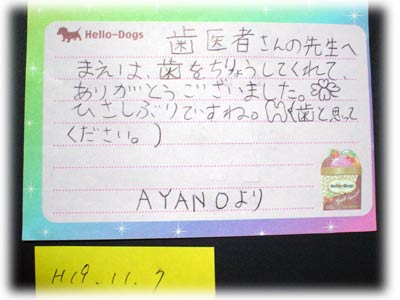 Hello-Dogs
歯医者さんの先生へ
まえは、歯をちりょうしてくれて、
ありがとうございました。
ひさしぶりですね。(歯と思って
ください。)
Hello-Dogs
AYANOより
H19.11.7